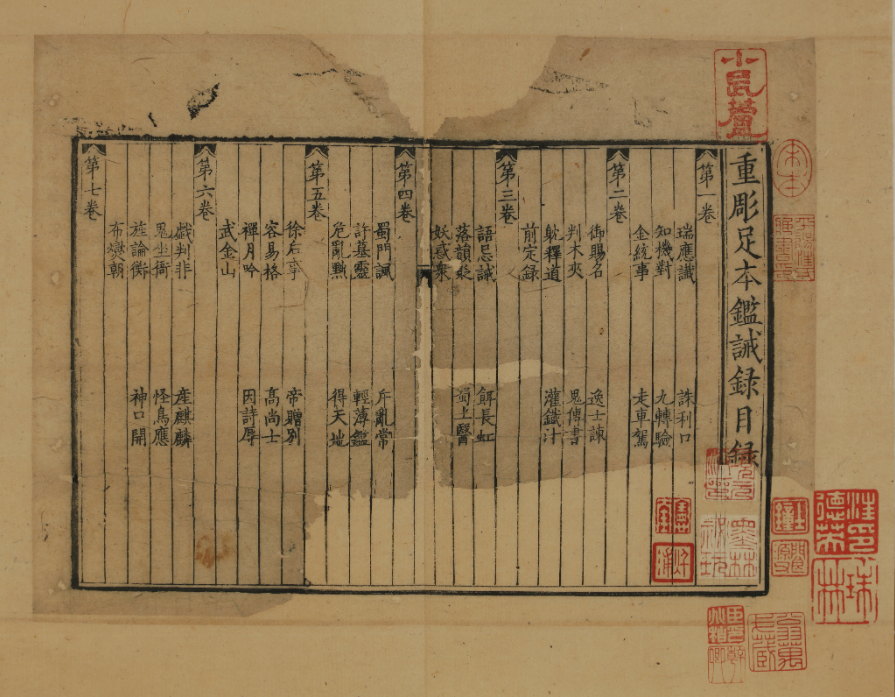 重彫足本鑑誡録目録
第一卷
瑞應讖 誅利口
知機對 九轉驗
金統事 走車駕
第二卷
御賜名 逸士諫
判木夾 鬼傳書
躭釋道 灌鐵汁
前定録
第三卷
語忌誡 餌長虹
落韻貶 蜀上醫
妖惑衆
第四卷
蜀門諷 斥亂常
許墓靈 輕薄鑑
危亂黥 得天地
第五卷
徐后事 帝贈別
容易格 高尚士
禪月吟 因詩辱
武金山
第六卷
戯判非 産麒麟
鬼坐衙 怪鳥應
旌論衡 神口開
布燮朝
第七卷
宋本